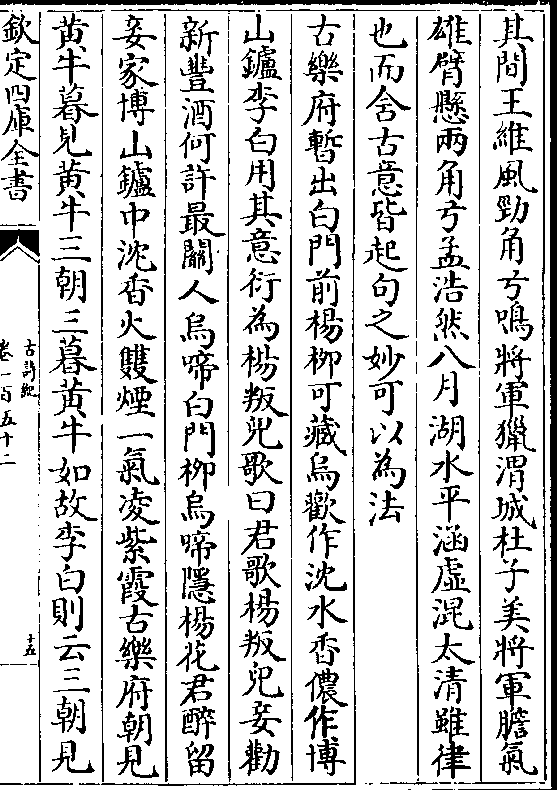 其間王維風勁角弓鳴將軍獵渭城杜子美將軍膽氣
雄臂懸兩角弓孟浩然八月湖水平涵虛混太清雖律
也而含古意皆起句之妙可以為法
古樂府暫出白門前楊柳可藏烏歡作沈水香儂作博
山鑪李白用其意衍為楊叛兒歌曰君歌楊叛兒妾勸
新豐酒何許最關人烏啼白門柳烏啼隱楊花君醉留
妾家博山鑪中沈香火雙煙一氣凌紫霞古樂府朝見
黃牛暮見黃牛三朝三暮黃牛如故李白則云三朝見
欽定四庫全書
古詩紀
卷一百五十二
十五